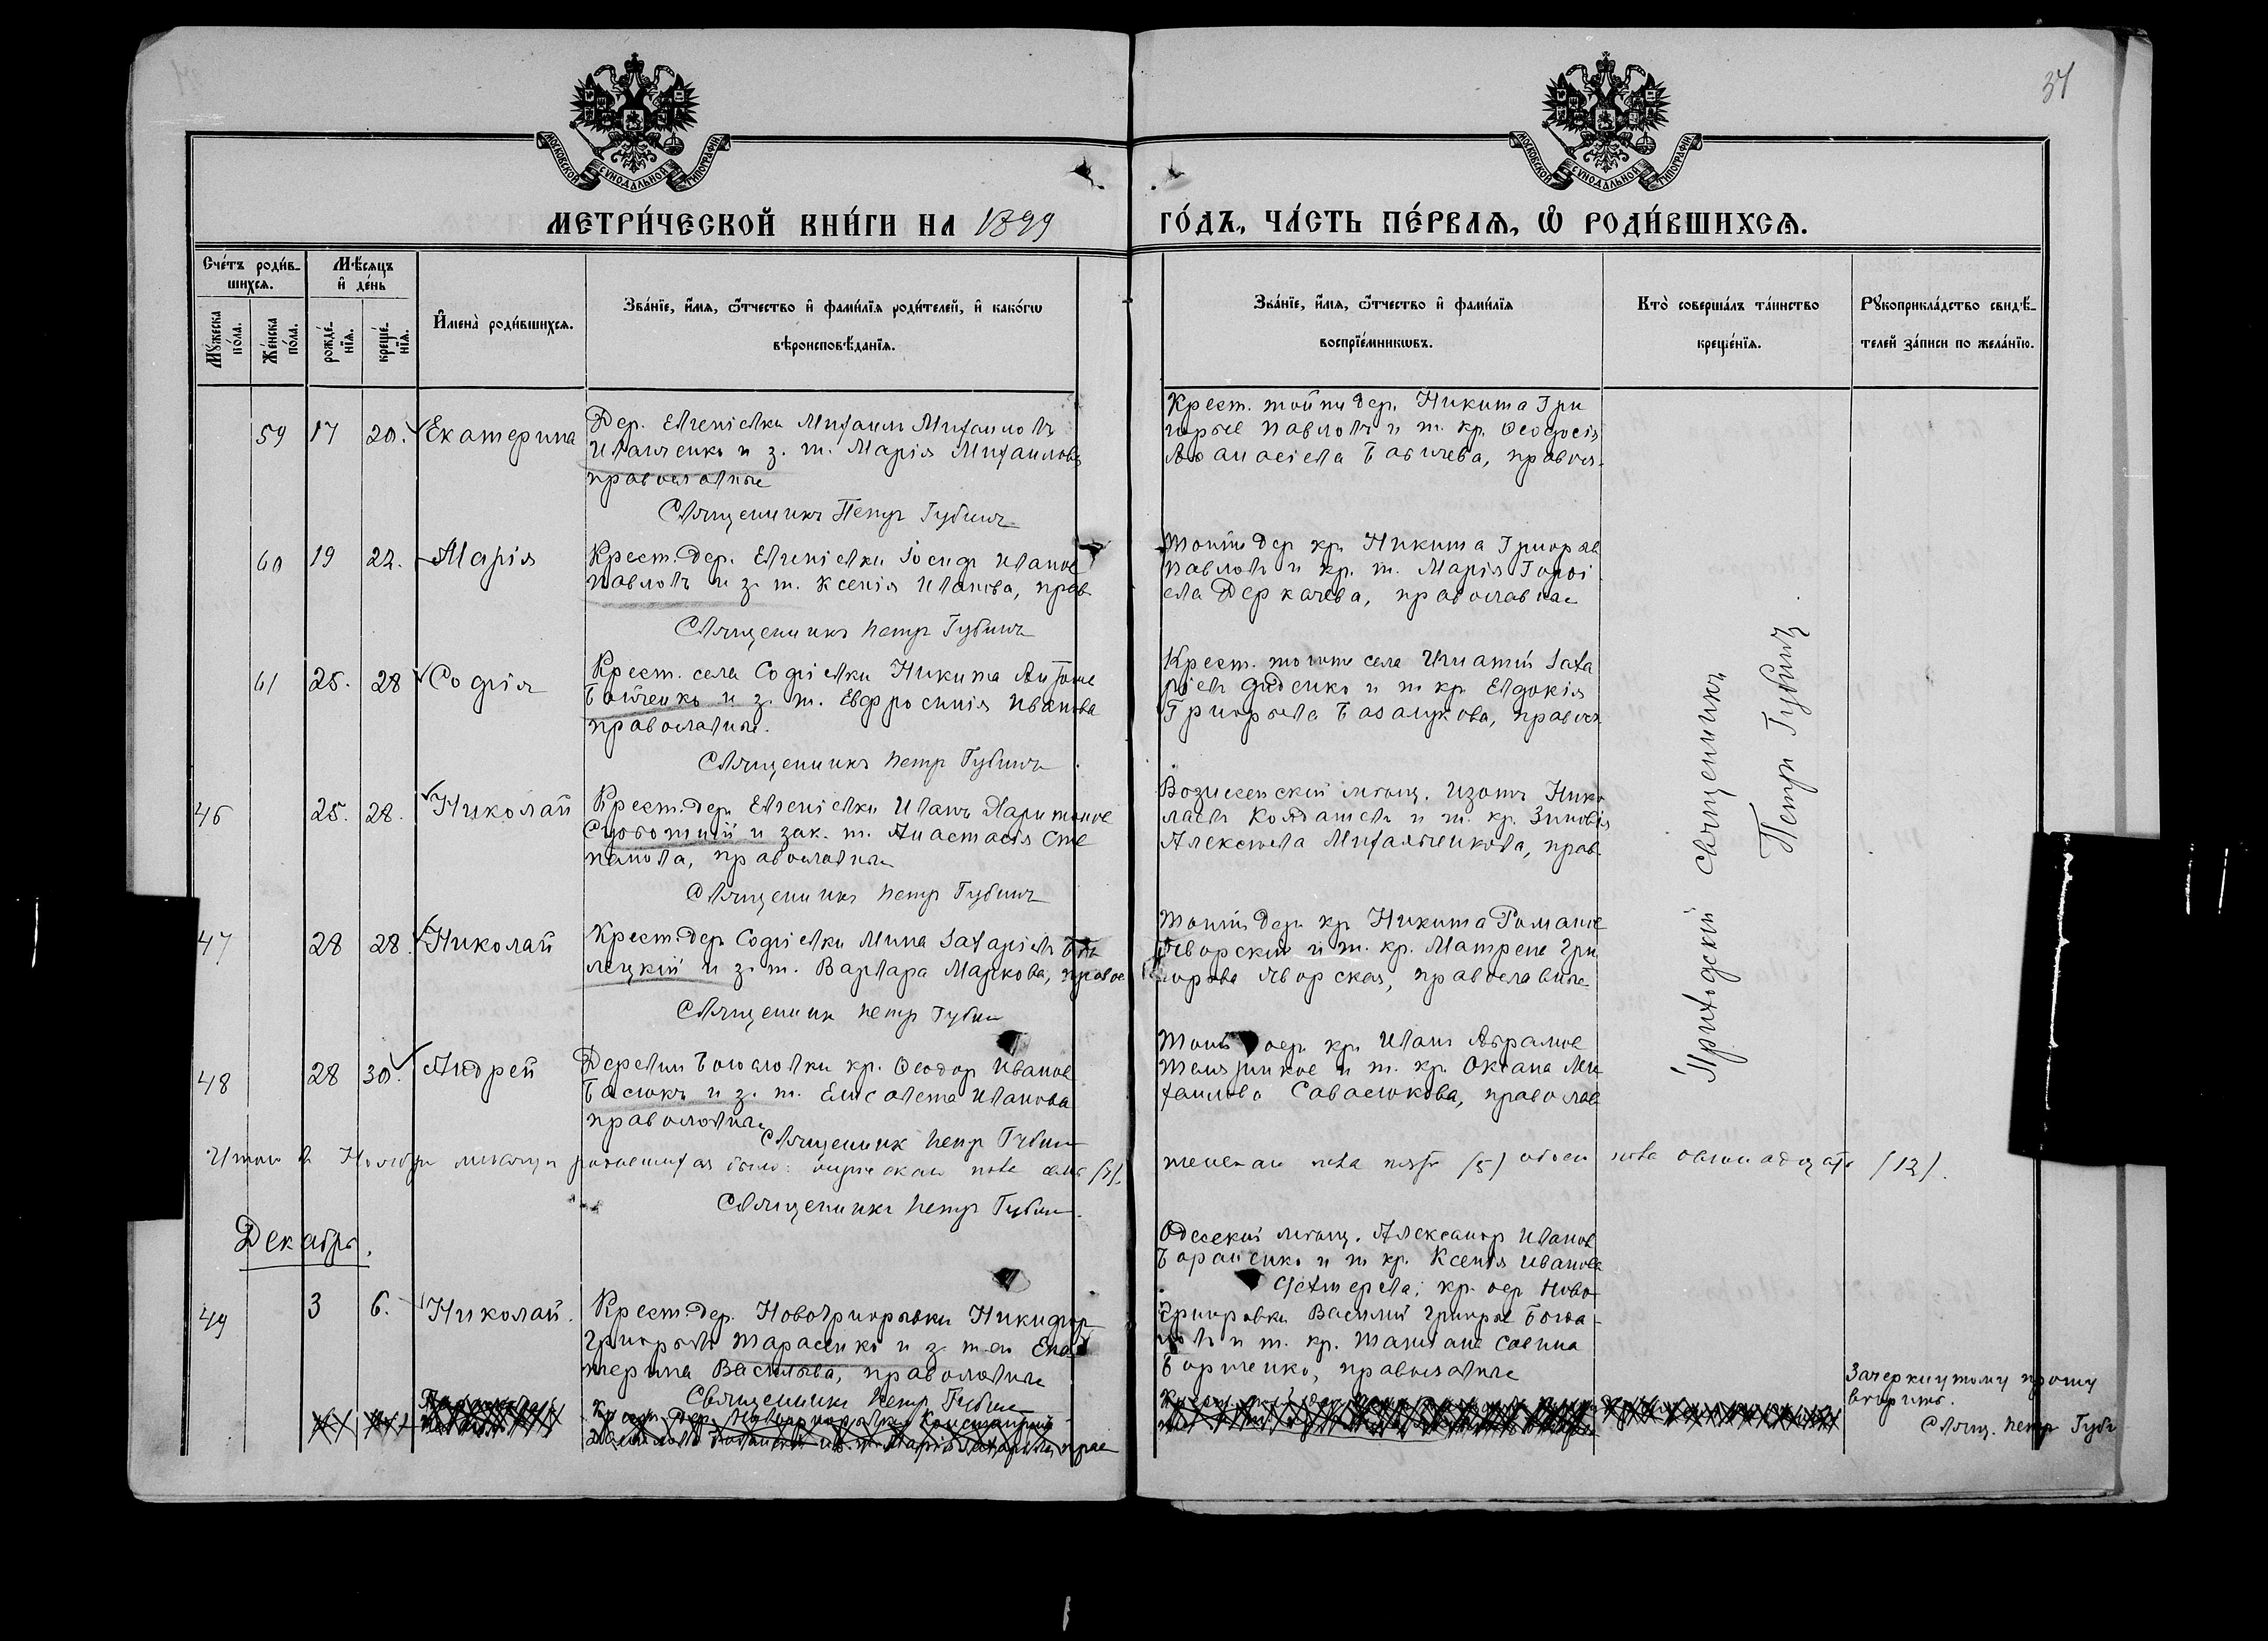 34
МОСКОВСКОЙ СУНОДАЛЬНОЙ ТИПОГРАФІИ
МОСКОВСКОЙ СУНОДАЛЬНОЙ ТИПОГРАФІИ
МЕТРИ́ЧЕСКОЙ КНИ́ГИ НА 1899
ГО́ДЪ, ЧА́СТЬ ПЕ́РВАѦ, Ѡ҆ РОДИ́ВШИХСѦ.
Сче́тъ роди́в-
шихсѧ.
Мѣ́сѧцъ
и҆ де́нь
Мꙋ́жеска
по́ла.
Же́нска
по́ла.
рожде́-
нїѧ.
креще́-
нїѧ.
И҆мена̀ роди́вшихсѧ.
Зва́нїе, и҆́мѧ, ѻ҆́тчество и҆ фами́лїѧ роди́телей, и҆ како́гѡ
вѣроисповѣ́данїѧ.
Зва́нїе, и҆́мѧ, ѻ҆́тчество и҆ фами́лїѧ
воспрїе́мникѡвъ.
Кто̀ соверша́лъ та́инство
креще́нїѧ.
Рꙋкоприкла́дство свидѣ́-
телей за́писи по жела́нїю.
59 17 20. Екатерина
Дер. Евгеніевки Михаилъ Михаиловъ
Иванченко и з. ж. Марія Михаилова
православные
Священникъ Петръ Губинъ
Крест. тойже дер. Никита Гри
горьев Павловъ и т. кр. Ѳеодосія
Аѳанасіева Бабичева, правосл.
60 19 22. Марія
Крест. дер. Евгеніевки Іосифъ Иванов
Павловъ и з. ж. Ксенія Иванова, прав.
Священникъ Петръ Губинъ
Тойже дер кр. Никита Григорьев
Павловъ и кр. ж. Марія
Деркачева, православные
61 25. 28 Софія
Крест. села Софіевки Никита Антонов
Бойченко и з. ж. Евфросинія Иванова
православные.
Священникъ Петръ Губинъ
Крест. тогоже села Игнатій Заха
ріевъ Диденко и т кр. Евдокія
Григорьева Базалукова, правосл.
46 25. 28. Николай
Крест. дер. Евгеніевки Иванъ Харитонов
и зак. ж. Анастасія Сте
панова, православные
Священникъ Петръ Губинъ
Вознесенскій мѣщ. Изотъ Нико
лаевъ и т. кр. Зиновія
Алексѣева Михальченкова, прав.
47 28 28. Николай
Крест. дер Софіевки Мина Захаріевъ Бѣ
лецкій и з. ж. Варвара Маркова, правос
Священникъ Петръ Губин
Тойже дер. кр Никита Романов
Яворскій и т. кр. Матрена Гри
горова Яворская, православные
48 28 30. Андрей
Деревни Богословки кр. Ѳеодоръ Иванов
Басюкъ и з. ж. Елисавета Иванова
православные
Священникъ Петръ Губин
Тойже дер. кр. Иванъ Абрамов
и т. кр. Оксана Ми
хаилова Савасюкова, православ
Итого въ Ноябрѣ мѣсяцѣ родившихся было: мужескаго пола семь (7).
женскаго пола пять (5) обоего пола двѣнадцать (12).
Священникъ Петръ Губин
Приходскій священникъ
Петръ Губинъ
Декабрь.
49 3 6. Николай.
Крест. дер. Новогригорьевки Никифоръ
Григорьевъ Тарасенко и з. ж. его Ека
терина Васильева, православные
Священникъ Петръ Губин
Одесскій мѣщ. Александръ Иванов
и т кр. Ксенія Иванова
кр. дер Ново
григоровки Василій Григорьев
и т. кр. Татіана Савина
православные
Зачеркнутому прошу
вѣрить.
Свящ. Петръ Губи